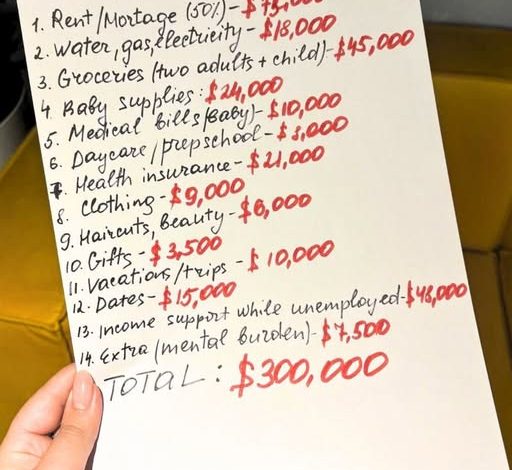 1. Rent/Mortage (50%)-$75,000
2. Water, gas, electricity-$18,000
3. Groceries (two adults + child)-$45,000
4. Baby supplies: $24,000
5. Medical bills (Baby)-$10,000
6. Daycare/prepschool-$8,000
7. Health insurance-$21,000
8. Clothing-$9,000
9. Haircuts, Beauty-$6,000
10. Gifts-$3,500
11. Vacations/trips-$10,000
12. Dates-$15,000
13. Income support while unemployed-$48,000
14. Extra (mental burden)-$7,500
TOTAL: $300,000